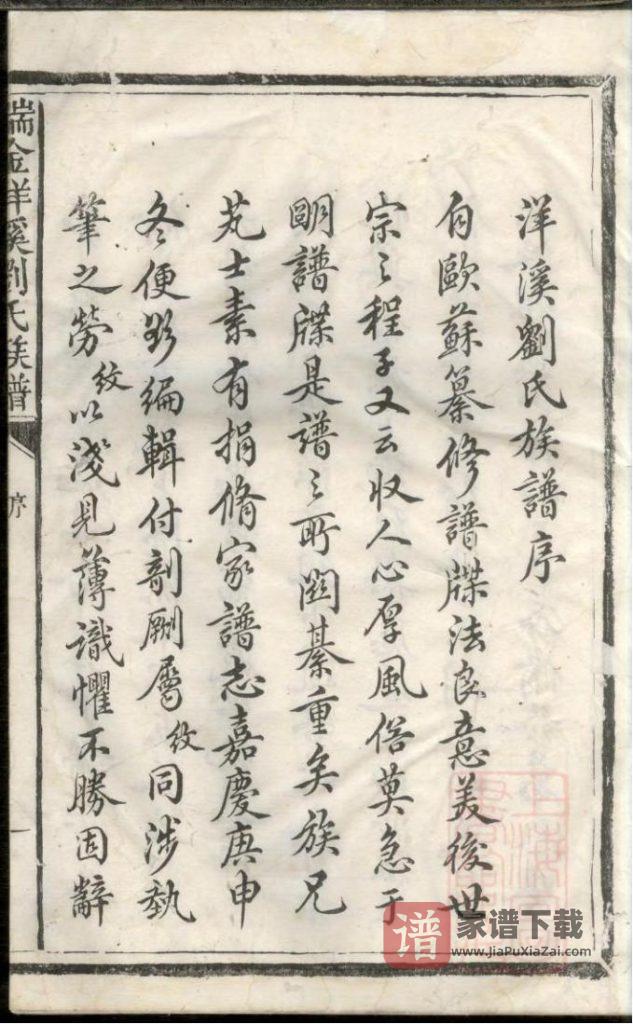 洋溪劉氏族譜序
自歐蘇纂修譜牒法良意美後世
宗之程子又云収人心厚風俗莫急于
明譜牒是譜之所関綦重矣族兄
芄士素有捐脩家譜志嘉慶庚申
冬便欲編輯付剞劂屬紋同涉執
筆之勞紋以淺見薄識懼不勝固辭
瑞金洋溪劉氏族譜
序
一
谱 家谱下载
www.JiaPuXiaZai.com